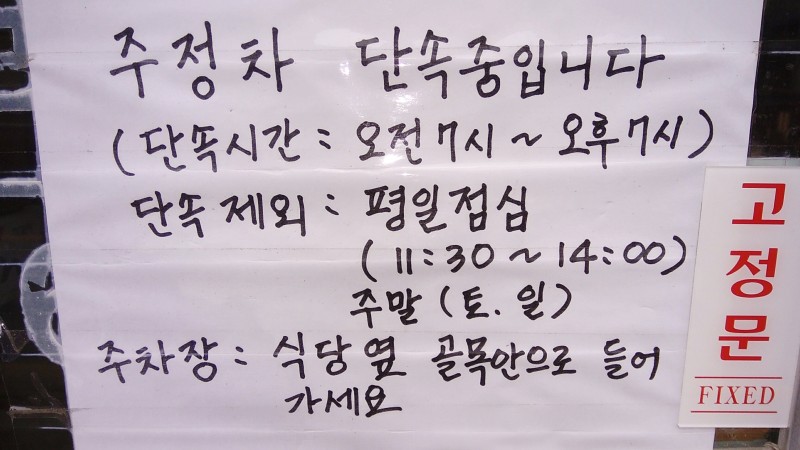 주정차 단속중입니다
(단속시간 : 오전 7시 ~ 오후 7시)
단속 제외 : 평일점심
(11:30 ~ 14:00)
주말 (토. 일)
주차장 : 식당옆 골목안으로 들어
가세요
고정문
FIXED